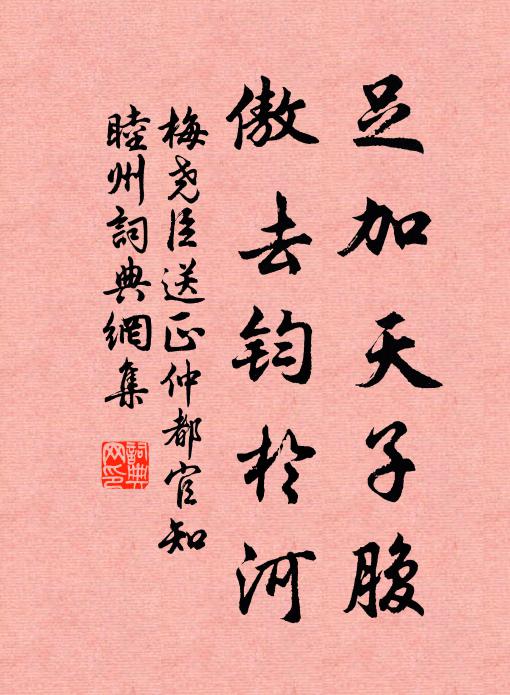 足加天子腹
傲去钧於河
梅尧臣送正仲都官知
睦州詞典網集
詞典
网印